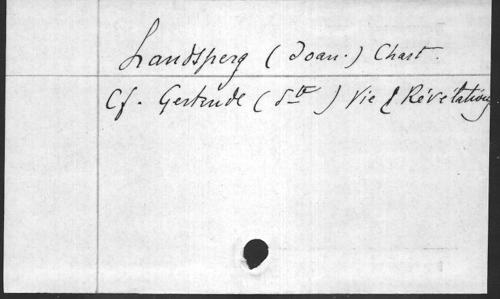 Landsperg (Joan.) Chart.
Cf. Gertrude (Ste) Vie & Révélations